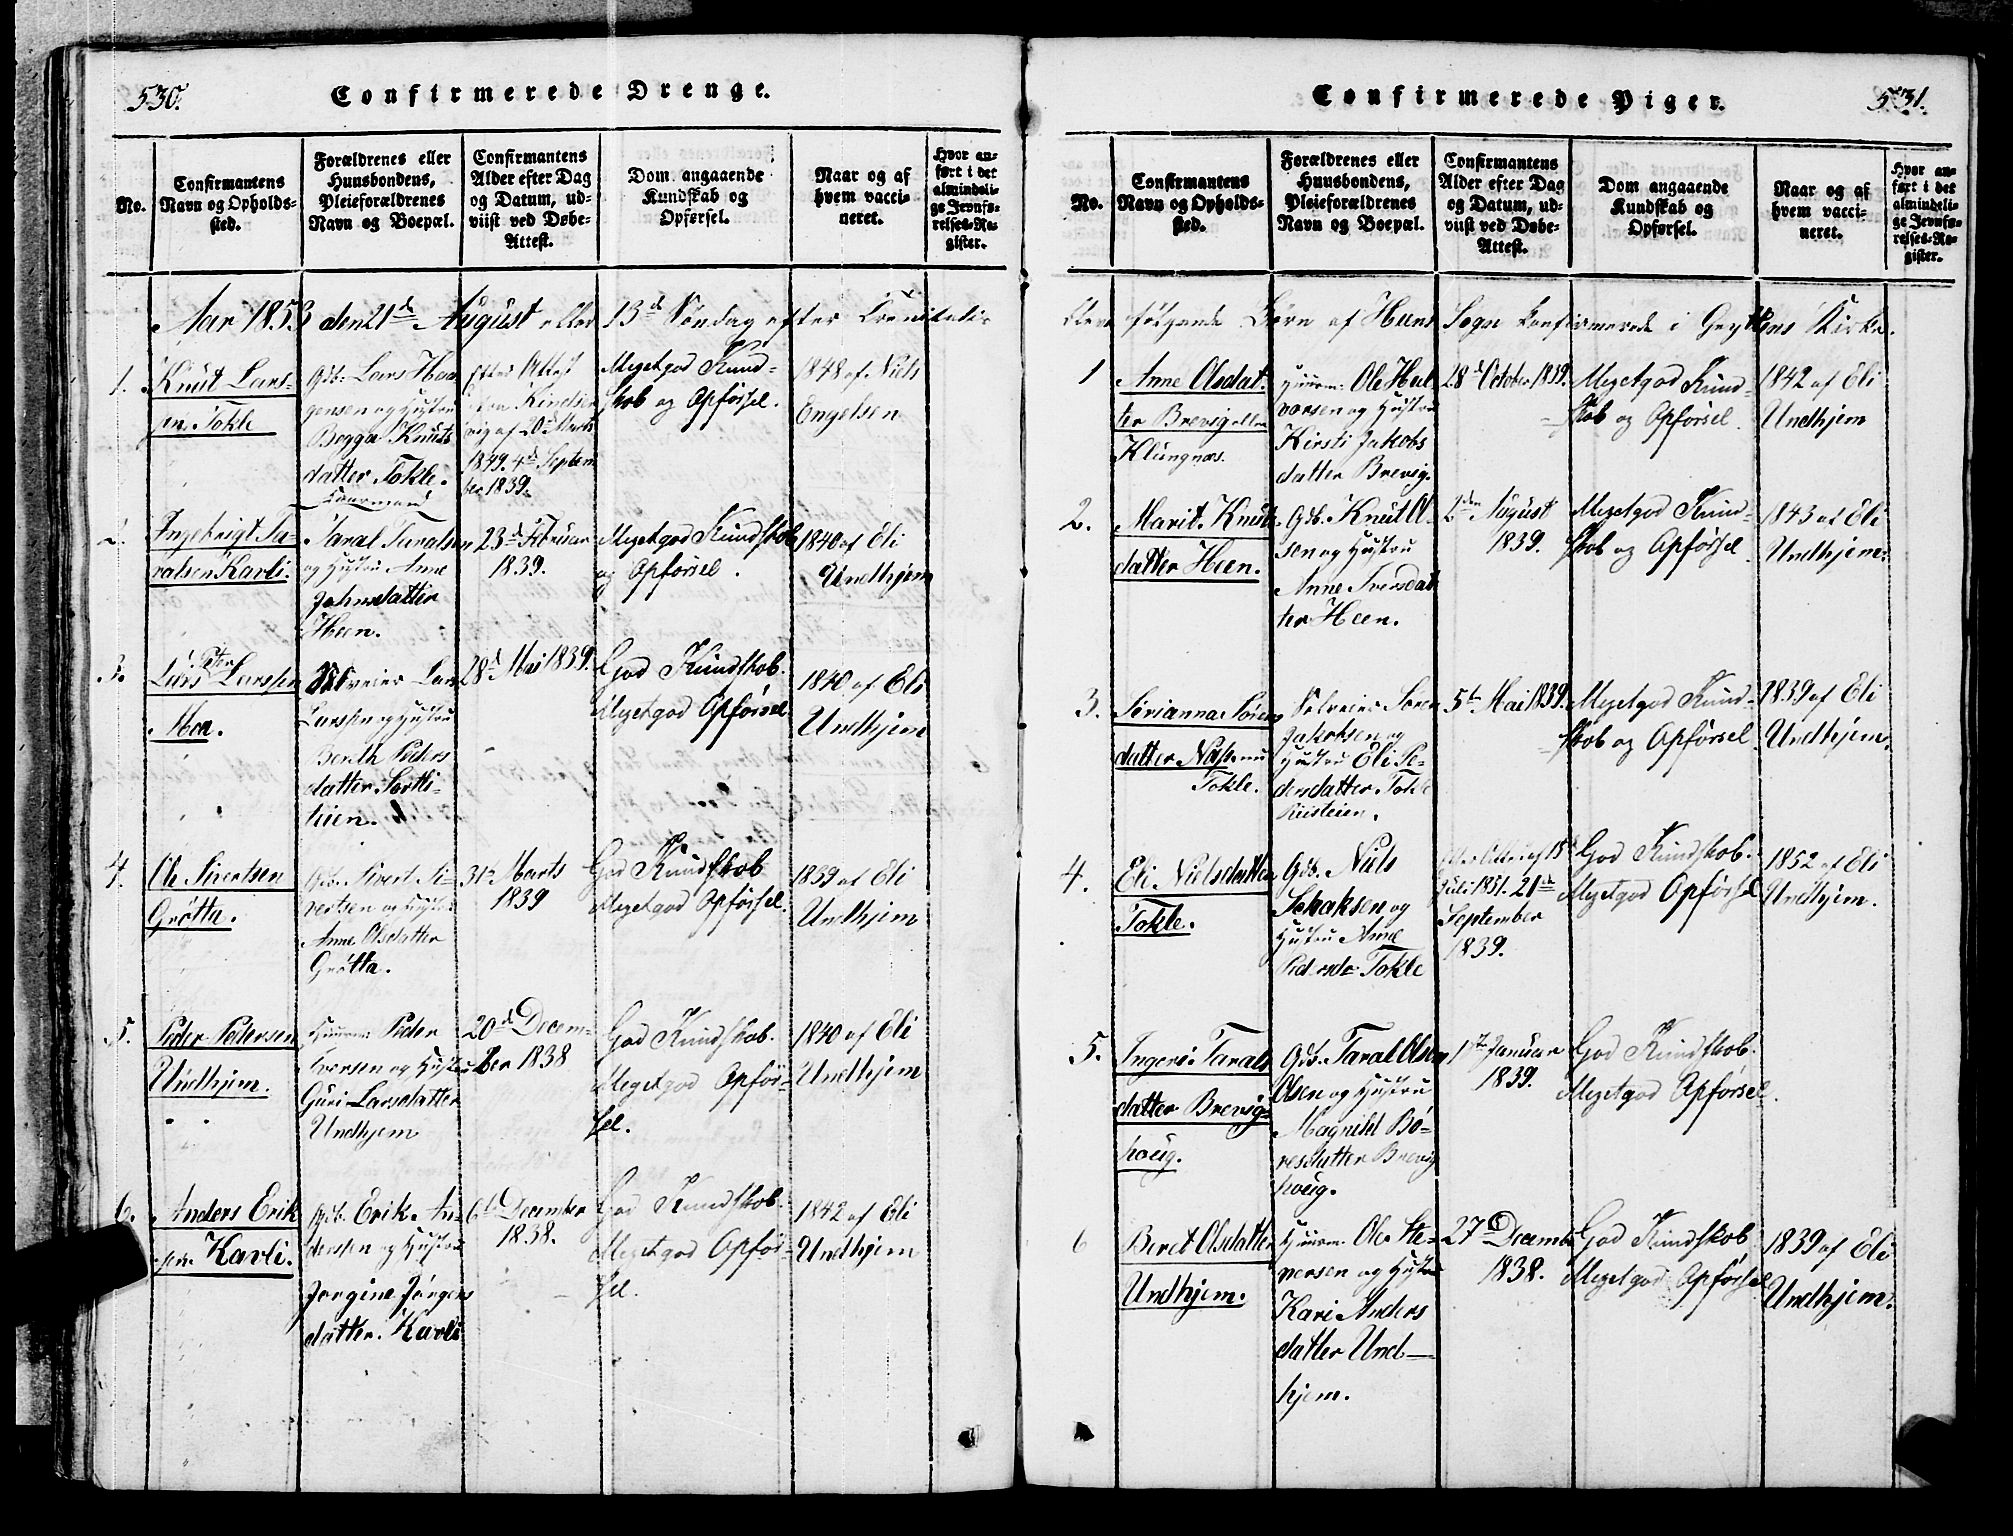 530.
Confirmerede Drenge.
No.
Confirmantens
Navn og Opholds-
sted.
Forældrenes eller
Huusbondens,
Pleieforældrenes
Navn og Boepæl.
Confirmantens
Alder efter Dag
og Datum, ud-
viist ved Døbe-
Attest.
Dom angaaende
Kundskab og
Opførsel.
Naar og af
hvem vacci-
neret.
Hvor an-
ført i det
almindeli-
ge Jevnfø-
relses-Re-
gister.
Aar 1853 den 21de August eller 13d Søndag efter Trinitatis
1.
Knut Lars-
sen Tokle
Gdb. Lars Haa
gensen og Hustru
Begga Knuts
datter Tokle.
Efter Attest
fra Kindser
vig af 20d Marts
1849. 4d Septem
ber 1839.
Megetgod Kund-
skab og Opførsel.
1848 af Niels
Engelsen
2.
Ingebrigt Ta-
ralsen Kavli.
Taral Taralsen
og Hustru Anne
Johnsdatter
Heen.
23d Februar
1839.
Megetgod Kundskab
og Opførsel.
1840 af Eli
Undhjem
3.
Peter
Lars Larssen
Moa.
Larssen og Hustru
Berith Peders
datter Sætli-
hien.
28d Mai 1839.
God Kundskab.
Megetgod Opførsel
1840 af Eli
Undhjem
4.
Ole Sivertsen
Grøtta.
Gdb. Sivert Si-
vertsen og Hustru
Anne Olsdatter
Grøtta.
31t Marts
1839
God Kundskab
Megetgod Opførsel.
1839 af Eli
Undhjem
5.
Peder Pedersen
Undhjem.
Huusm. Peder
Iversen og Hustru
Guri Larsdatter
Undhjem
20d Decem-
ber 1838
God Kundskab.
Megetgod Opfør-
sel.
1840 af Eli
Undhjem
6.
Anders Erik
sen Kavli.
Gdb. Erik An-
derssen og Hustru
Jorgine Jørgens
datter. Kavli
6t December
1838.
God Kundskab.
Megetgod Opfør-
sel.
1842 af Eli
Undhjem
531.
Confirmerede Piger.
No.
Confirmantens
Navn og Opholds-
sted.
Forældrenes eller
Huusbondens,
Pleieforældrenes
Navn og Boepæl.
Confirmantens
Alder efter Dag
og Datum, ud-
viist ved Døbe-
Attest.
Dom angaaende
Kundskab og
Opførsel.
Naar og af
hvem vacci-
neret.
Hvor an-
ført i det
almindeli-
ge Jevnfø-
relses-Re-
gister.
følgende Børn af Heens Sogn konfirmerede i Gryttens Kirke.
1
Anne Olsdat-
ter Brevig eller
Klungnæs.
Huusm. Ole Hal
vorsen og Hustru
Kirsti Jakobs
datter Brevig.
28d October 1839.
Megetgod Kund-
skab og Opførsel.
1842 af Eli
Undhjem
2.
Marit Knuts
datter Heen.
Gdb. Knut Ol-
sen og Hustru
Anne Iversdat
ter Heen.
2den August
1839.
Megetgod Kund-
skab og Opførsel.
1843 af Eli
Undhjem.
3.
Sørianna Sørens
datter Næss nu
Tokle.
Selveier Søren
Jakobsen og
Hustru Eli Pe-
dersdatter Tokle
5t Mai 1839.
Megetgod Kund-
skab og Opførsel
1839 af Eli
Undhjem.
4.
Eli Nielsdatter
Tokle.
Gdb. Niels
Schaksen og
Hustru Anne
Pedersdr Tokle
Efter Attest af 18d
Juli 1851. 21de
September
1839.
God Kundskab.
Megetgod Opførsel
1852 af Eli
Undhjem.
5.
Ingeri Tarals
datter Brevig-
houg.
Gdb. Taral Olsen
Olsen og Hustru
Magnild Bø-
resdatter Brevig
houg.
1ste Januar
1839.
God Kundskab.
Megetgod Opførsel.
6
Beret Olsdatter
Undhjem.
Huusm. Ole Ste-
versen og Hustru
Kari Anders
datter Und-
hjem.
27d Decembr
1838.
God Kundskab
Megetgod Opførsel
1839 af Eli
Undhjem.